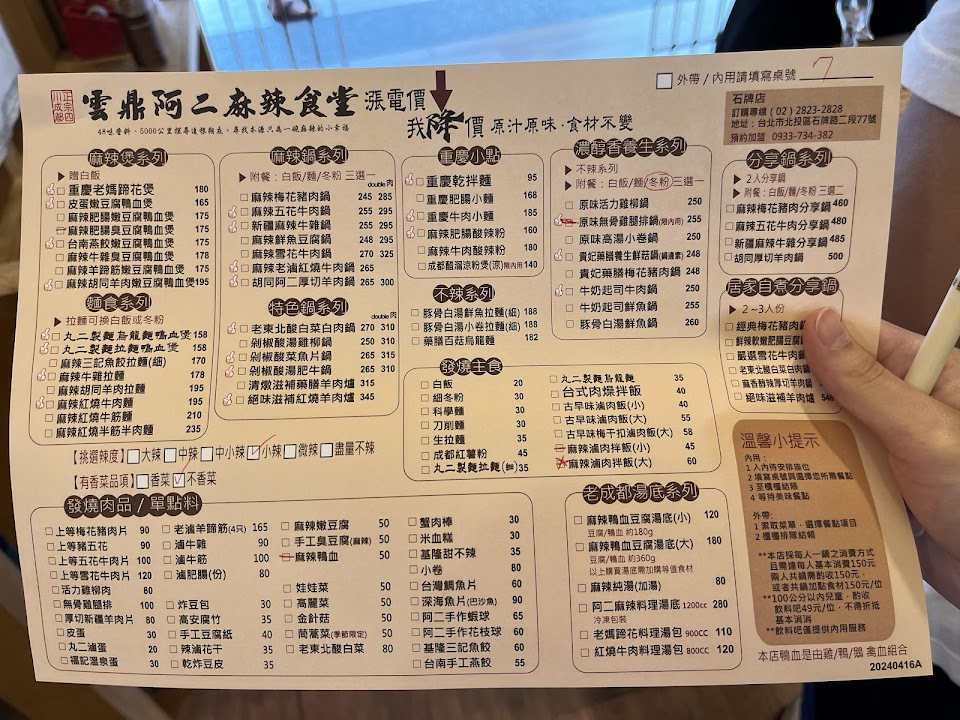 正宗四川成都
雲鼎阿二麻辣食堂
漲電價
我降價 原汁原味·食材不變
48味香料、5000公里探尋達根頰處，尋找本源只為一碗麻辣的小幸福
外帶 / 內用請填寫桌號 7
石牌店
訂購專線 ( 02 ) 2823-2828
地址：台北市北投區石牌路二段77號
預約加盟 0933-734-382
麻辣煲系列
贈白飯
重慶老媽蹄花煲 180
皮蛋嫩豆腐鴨血煲 165
麻辣肥腸嫩豆腐鴨血煲 175
麻辣肥腸臭豆腐鴨血煲 175
台南燕餃嫩豆腐鴨血煲 175
麻辣牛雜臭豆腐鴨血煲 175
麻辣羊蹄筋嫩豆腐鴨血煲 175
麻辣胡同羊肉嫩豆腐鴨血煲 195
麵食系列
拉麵可換白飯或冬粉
丸二製麵烏龍麵鴨血煲 158
丸二製麵拉麵鴨血煲 158
麻辣三記魚餃拉麵(細) 170
麻辣牛雜拉麵 178
麻辣胡同羊肉拉麵 195
麻辣紅燒牛肉麵 195
麻辣紅燒牛筋麵 210
麻辣紅燒半筋半肉麵 235
麻辣鍋系列
附餐：白飯/麵/冬粉 三選一
double肉
麻辣梅花豬肉鍋 245 285
麻辣五花牛肉鍋 255 295
新疆麻辣牛雜鍋 255 295
麻辣鮮魚豆腐鍋 248 295
麻辣雪花牛肉鍋 270 325
麻辣老滷紅燒牛肉鍋 265
胡同阿二厚切羊肉鍋 265 300
特色鍋系列
double肉
老東北酸白菜白肉鍋 270 310
剁椒酸湯雞柳鍋 250 310
剁椒酸菜魚片鍋 265 315
剁椒酸湯肥牛鍋 265 310
清燉滋補藥膳羊肉爐 315
絕味滋補紅燒羊肉爐 345
重慶小點
重慶乾拌麵 95
重慶肥腸小麵 168
重慶牛肉小麵 185
麻辣肥腸酸辣粉 160
麻辣牛肉酸辣粉 180
成都醋溜涼粉煲(涼)限內用 140
不辣系列
豚骨白湯鮮魚拉麵(細) 188
豚骨白湯小卷拉麵(細) 188
藥膳百菇烏龍麵 182
濃醇香養生系列
不辣系列
附餐：白飯/麵/冬粉 三選一
原味活力雞柳鍋 250
原味無骨雞腿排鍋(限內用) 255
原味高湯小卷鍋 250
貴妃藥膳養生鮮菇鍋(鍋邊素) 248
貴妃藥膳梅花豬肉鍋 248
牛奶起司牛肉鍋 250
牛奶起司鮮魚鍋 250
豚骨白湯鮮魚鍋 260
分享鍋系列
2人分享鍋
附餐：白飯/麵/冬粉 三選二
麻辣梅花豬肉分享鍋 460
麻辣五花牛肉分享鍋 480
新疆麻辣牛雜分享鍋 485
胡同厚切羊肉鍋 500
居家自煮分享鍋
2~3人份
經典梅花豬肉鍋
鮮辣軟嫩肥腸豆腐
嚴選雪花牛肉鍋
老東北酸白菜白肉鍋
麻香醇辣厚切羊肉鍋
絕味滋補羊肉爐 548
發燒主食
白飯 20
細冬粉 30
科學麵 30
刀削麵 30
生拉麵 35
成都紅薯粉 45
丸二製麵拉麵(細) 35
丸二製麵烏龍麵 35
台式肉燥拌飯 40
古早味滷肉飯(小) 40
古早味滷肉飯(大) 55
古早味梅干扣滷肉飯(大) 58
麻辣滷肉拌飯(小) 45
麻辣滷肉拌飯(大) 60
【挑選辣度】 大辣 中辣 中小辣 小辣 微辣 盡量不辣
【有香菜品項】 香菜 不香菜
發燒肉品 / 單點料
上等梅花豬肉片 90
上等豬五花 90
上等五花牛肉片 100
上等雪花牛肉片 120
活力雞柳肉 80
無骨雞腿排 100
厚切新疆羊肉片 80
皮蛋 30
丸二滷蛋 20
福記溫泉蛋 30
老滷羊蹄筋(4只) 165
滷牛雜 90
滷牛筋 100
滷肥腸(份) 80
炸豆包 30
高安腐竹 35
手工豆腐紙 40
辣滷花干 35
乾炸豆皮 35
麻辣嫩豆腐 50
手工臭豆腐(麻辣) 50
麻辣鴨血 50
娃娃菜 50
高麗菜 50
金針菇 50
茼蒿菜(季節限定) 50
老東北酸白菜 80
蟹肉棒 30
米血糕 30
基隆甜不辣 35
小卷 80
台灣鯛魚片 60
深海魚片(巴沙魚) 90
阿二手作蝦球 65
阿二手作花枝球 60
基隆三記魚餃 60
台南手工燕餃 55
老成都湯底系列
麻辣鴨血豆腐湯底(小) 120
豆腐/鴨血 約180g
麻辣鴨血豆腐湯底(大) 180
豆腐/鴨血 約360g
以上購買湯底需加購等值食材
麻辣純湯(加湯) 80
阿二麻辣料理湯底 1200cc 280
冷凍包裝
老媽蹄花料理湯包 900CC 110
紅燒牛肉料理湯包 800CC 120
溫馨小提示
內用：
1 人內待安排座位
2 填寫桌號寫選擇您所需餐點
3 至櫃檯結帳
4 等待美味餐點
外帶：
1 索取菜單，選擇餐點項目
2 櫃檯排隊結帳
**本店採每人一鍋之消費方式
且需達每人基本消費150元
兩人共鍋需酌收150元，
或者共鍋加點食材150元/位
**100公分以內兒童，酌收
飲料吧49元/位，不得折抵
基本消費
**飲料吧僅提供內用服務
本店鴨血是由雞/鴨/鵝 禽血組合
20240416A